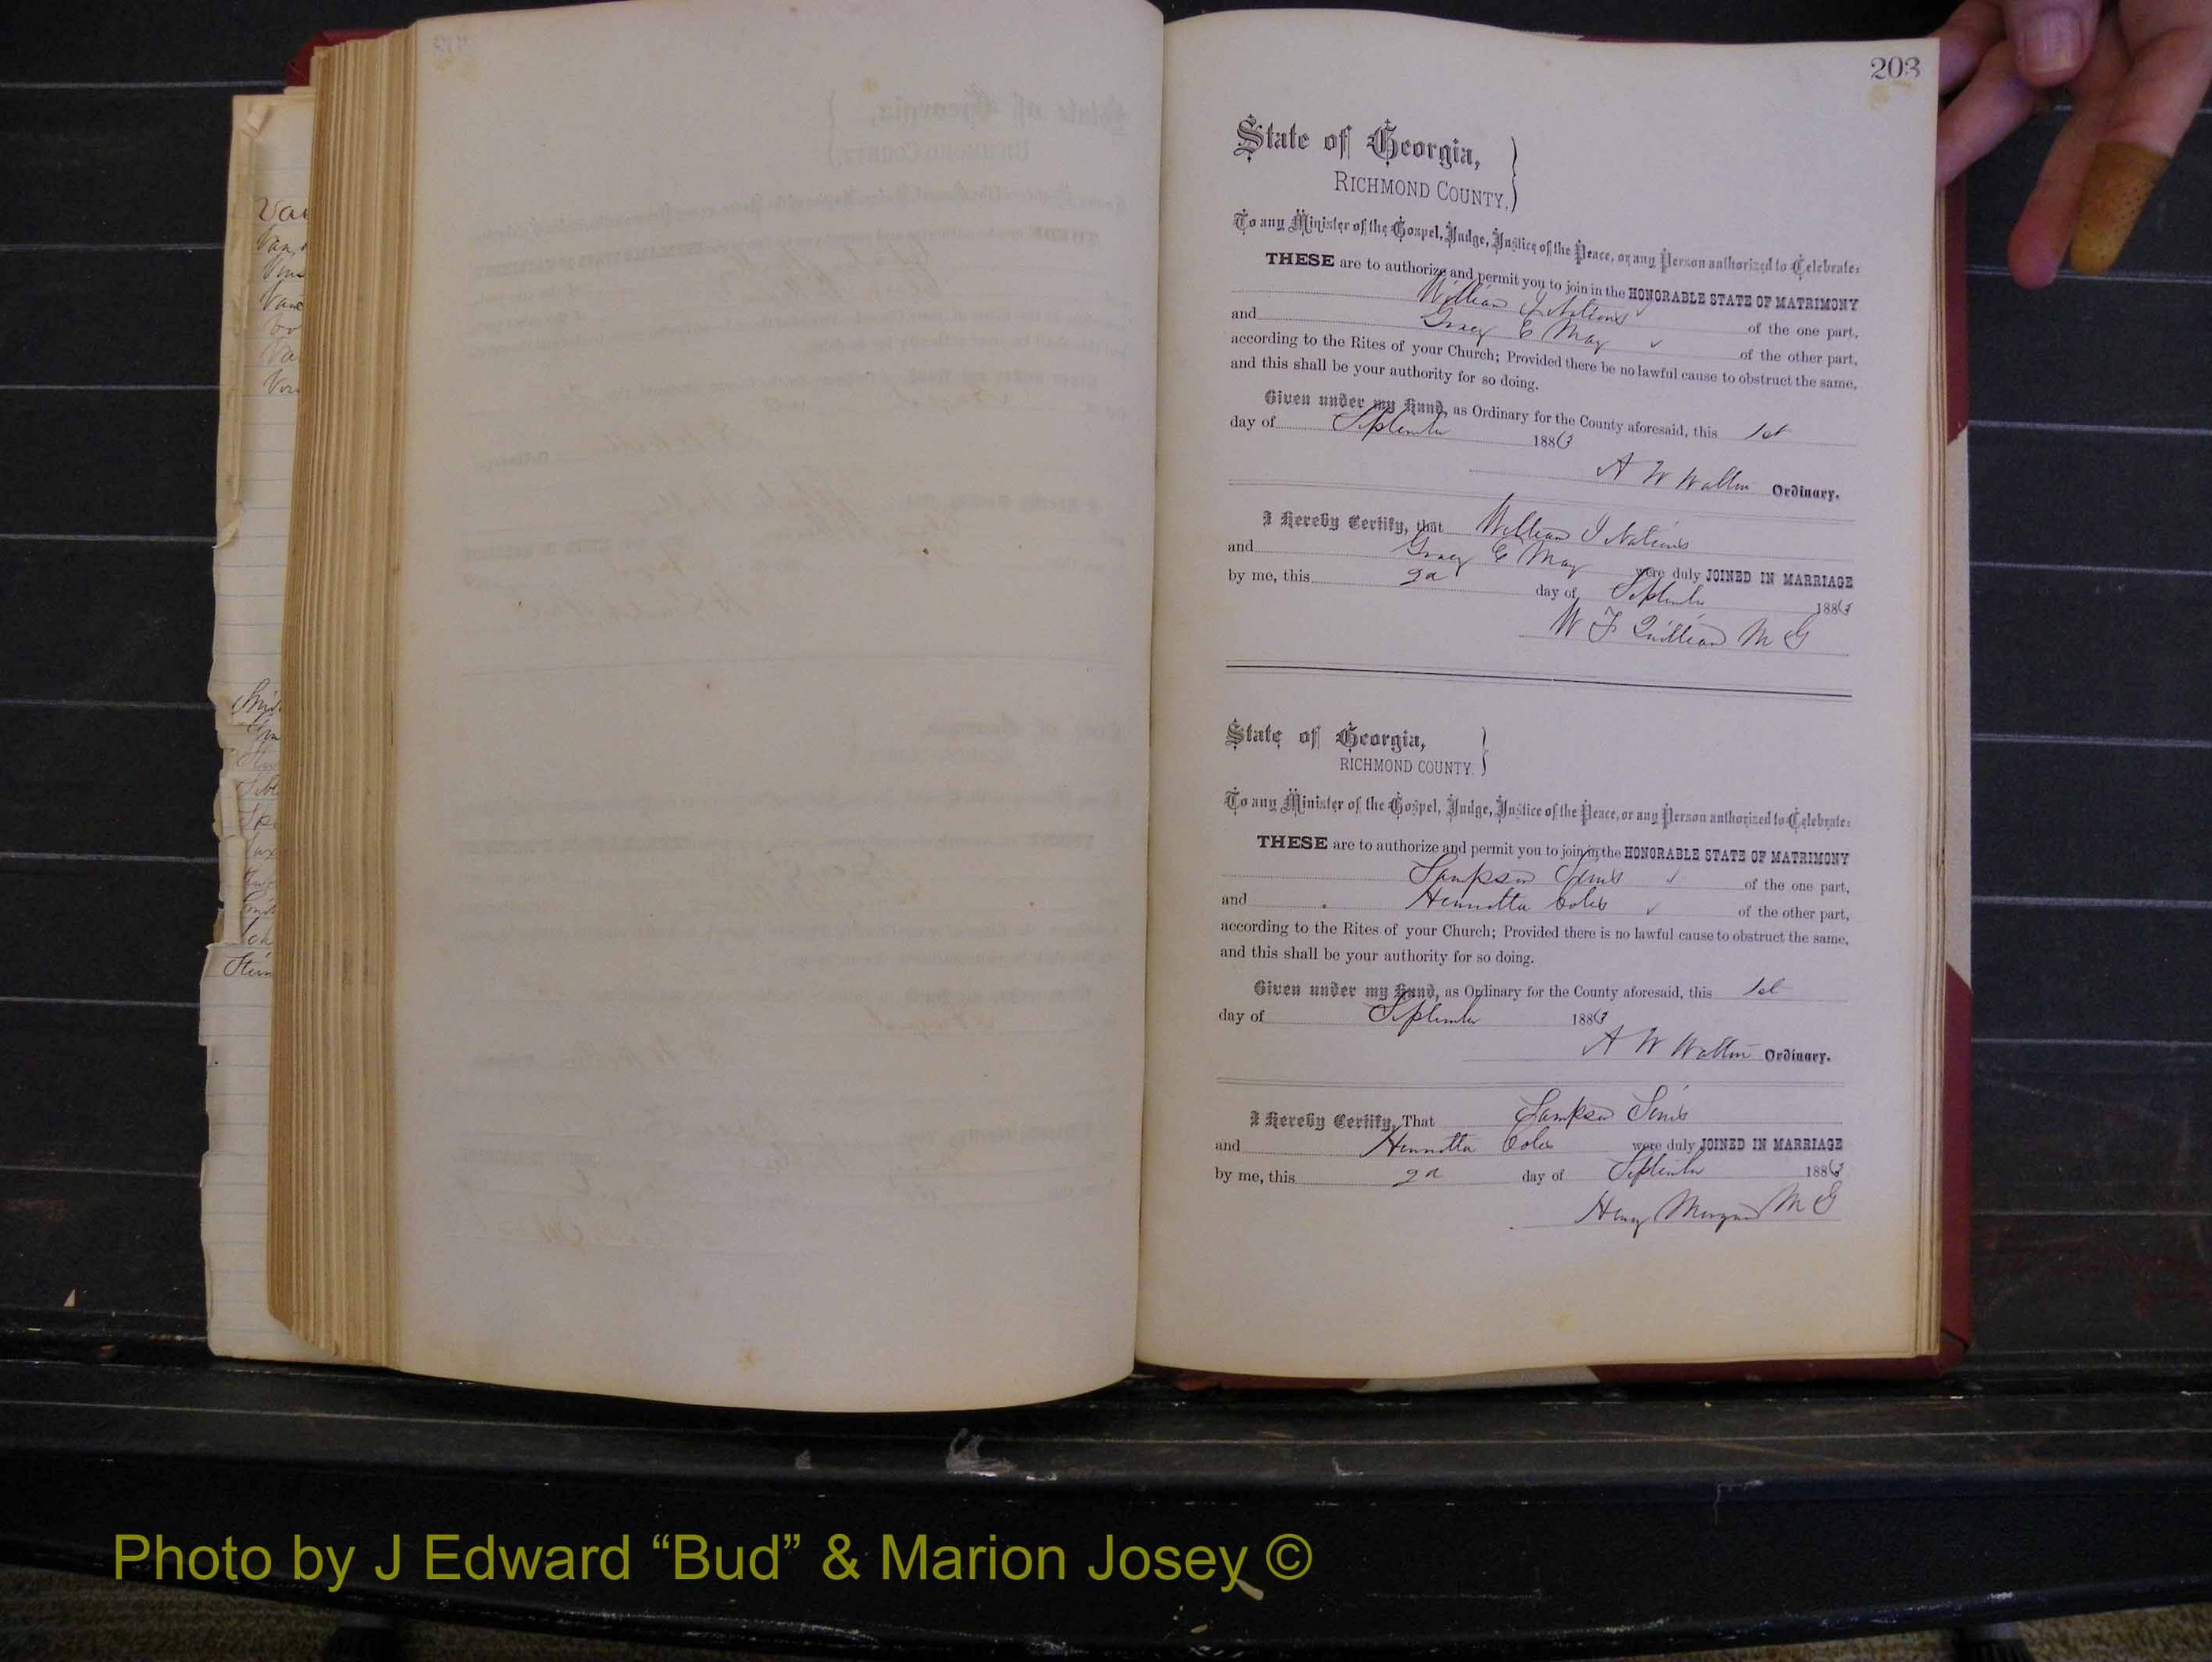 203
State of Georgia,
RICHMOND COUNTY.
To any Minister of the Gospel, Judge, Justice of the Peace, or any Person authorized to Celebrate:
THESE are to authorize and permit you to join in the HONORABLE STATE OF MATRIMONY
William J Nations of the one part,
and Gracy E May of the other part,
according to the Rites of your Church; Provided there be no lawful cause to obstruct the same,
and this shall be your authority for so doing.
Given under my Hand, as Ordinary for the County aforesaid, this 1st
day of September 1886
A W Walton Ordinary.
I Hereby Certify, that William J Nations
and Gracy E May were duly JOINED IN MARRIAGE
by me, this 2d day of September 1886
W F Quillian M G
State of Georgia,
RICHMOND COUNTY.
To any Minister of the Gospel, Judge, Justice of the Peace, or any Person authorized to Celebrate:
THESE are to authorize and permit you to join in the HONORABLE STATE OF MATRIMONY
Sampson Sims of the one part,
and Henrietta Coles of the other part,
according to the Rites of your Church; Provided there is no lawful cause to obstruct the same,
and this shall be your authority for so doing.
Given under my Hand, as Ordinary for the County aforesaid, this 1st
day of September 1886
A W Walton Ordinary.
I Hereby Certify, That Sampson Sims
and Henrietta Coles were duly JOINED IN MARRIAGE
by me, this 2d day of September 1886
Henry Morgan M G
Photo by J Edward “Bud” & Marion Josey ©